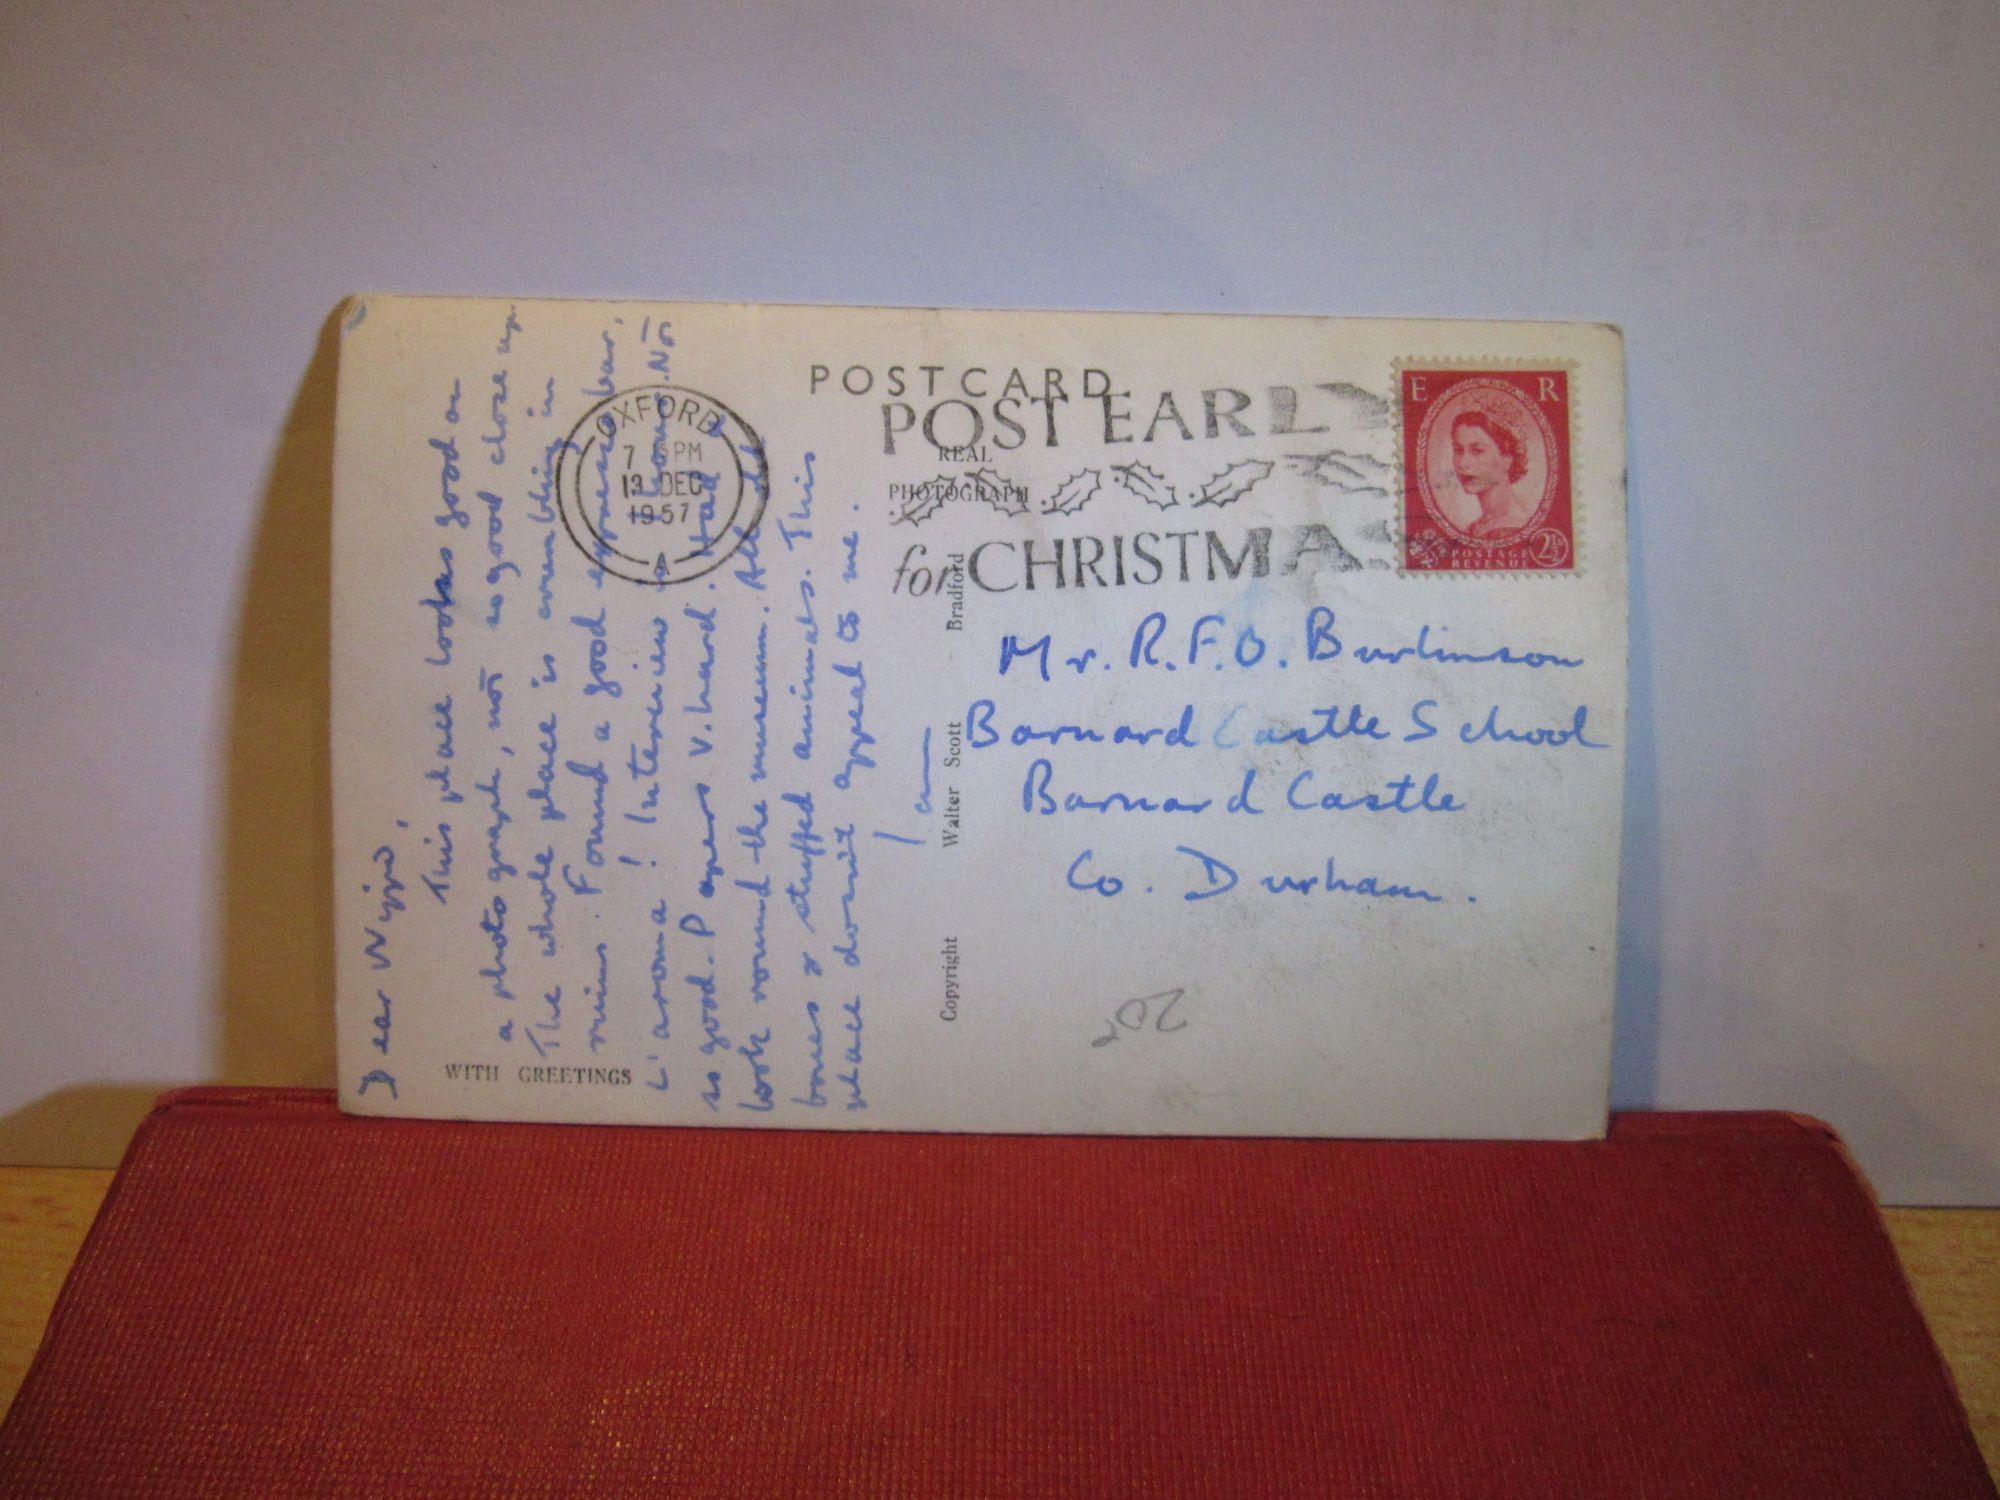 POSTCARD
REAL
PHOTOGRAPH
OXFORD
7 PM
13 DEC
1957
A
POST EARL
for CHRISTMA
E R
POSTAGE
REVENUE
2½
Dear
This place looks good on
a photograph, not so good close up.
The whole place is crumbling in
ruins. Found a good espresso bar,
L'aroma! Interview. Not
so good. Papers v. hard. Had a
look round the museum. All old
bones & stuffed animals. This
place doesn't appeal to me.
Ian
WITH GREETINGS
Copyright Walter Scott Bradford
Mr. R.F.O. Burlinson
Barnard Castle School
Barnard Castle
Co. Durham.
20